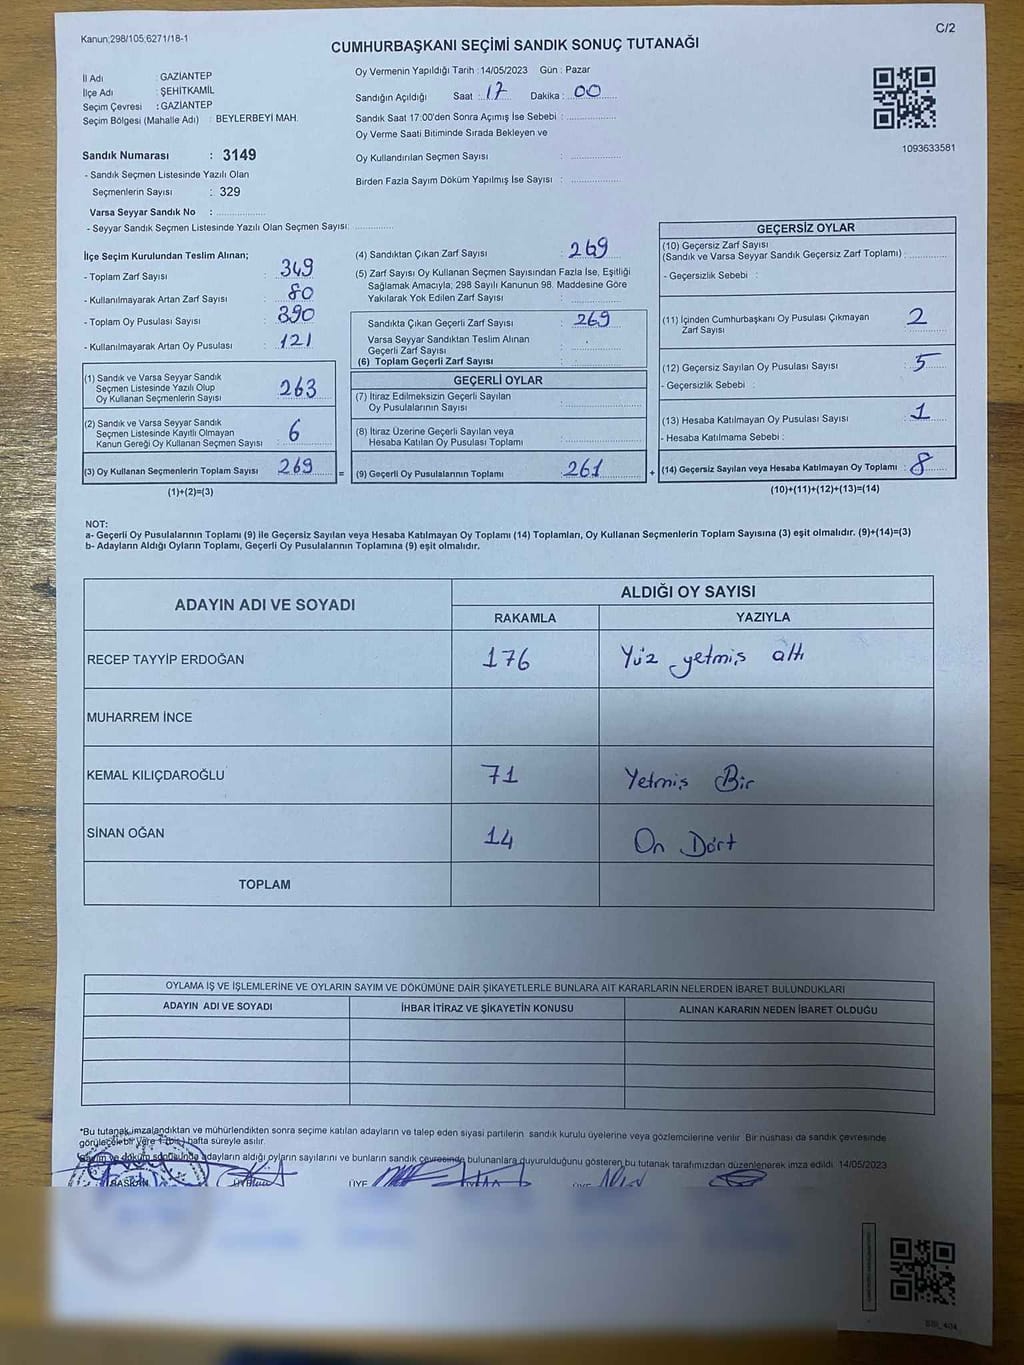 Kanun;298/105;6271/18-1
C/2
CUMHURBAŞKANI SEÇİMİ SANDIK SONUÇ TUTANAĞI
İl Adı : GAZİANTEP
İlçe Adı : ŞEHİTKAMİL
Seçim Çevresi : GAZİANTEP
Seçim Bölgesi (Mahalle Adı) : BEYLERBEYİ MAH.
Sandık Numarası : 3149
- Sandık Seçmen Listesinde Yazılı Olan
Seçmenlerin Sayısı : 329
Varsa Seyyar Sandık No : ..................
- Seyyar Sandık Seçmen Listesinde Yazılı Olan Seçmen Sayısı: ..................
Oy Vermenin Yapıldığı Tarih : 14/05/2023 Gün : Pazar
Sandığın Açıldığı Saat : 17 Dakika : 00
Sandık Saat 17:00'den Sonra Açımış İse Sebebi : ..................
Oy Verme Saati Bitiminde Sırada Bekleyen ve
Oy Kullandırılan Seçmen Sayısı : ..................
Birden Fazla Sayım Döküm Yapılmış İse Sayısı : ..................
1093633581
İlçe Seçim Kurulundan Teslim Alınan;
- Toplam Zarf Sayısı : 349
- Kullanılmayarak Artan Zarf Sayısı : 80
- Toplam Oy Pusulası Sayısı : 390
- Kullanılmayarak Artan Oy Pusulası : 121
(1) Sandık ve Varsa Seyyar Sandık
Seçmen Listesinde Yazılı Olup
Oy Kullanan Seçmenlerin Sayısı : 263
(2) Sandık ve Varsa Seyyar Sandık
Seçmen Listesinde Kayıtlı Olmayan
Kanun Gereği Oy Kullanan Seçmen Sayısı : 6
(3) Oy Kullanan Seçmenlerin Toplam Sayısı : 269
(1)+(2)=(3)
(4) Sandıktan Çıkan Zarf Sayısı : 269
(5) Zarf Sayısı Oy Kullanan Seçmen Sayısından Fazla İse, Eşitliği
Sağlamak Amacıyla, 298 Sayılı Kanunun 98. Maddesine Göre
Yakılarak Yok Edilen Zarf Sayısı : ..................
Sandıkta Çıkan Geçerli Zarf Sayısı : 269
Varsa Seyyar Sandıktan Teslim Alınan
Geçerli Zarf Sayısı :
(6) Toplam Geçerli Zarf Sayısı :
GEÇERLİ OYLAR
(7) İtiraz Edilmeksizin Geçerli Sayılan
Oy Pusulalarının Sayısı : ..................
(8) İtiraz Üzerine Geçerli Sayılan veya
Hesaba Katılan Oy Pusulası Toplamı : ..................
= (9) Geçerli Oy Pusulalarının Toplamı : 261
GEÇERSİZ OYLAR
(10) Geçersiz Zarf Sayısı
(Sandık ve Varsa Seyyar Sandık Geçersiz Zarf Toplamı) : ..................
- Geçersizlik Sebebi :
(11) İçinden Cumhurbaşkanı Oy Pusulası Çıkmayan
Zarf Sayısı : 2
(12) Geçersiz Sayılan Oy Pusulası Sayısı : 5
- Geçersizlik Sebebi :
(13) Hesaba Katılmayan Oy Pusulası Sayısı : 1
- Hesaba Katılmama Sebebi :
+ (14) Geçersiz Sayılan veya Hesaba Katılmayan Oy Toplamı : 8
(10)+(11)+(12)+(13)=(14)
NOT:
a- Geçerli Oy Pusulalarının Toplamı (9) ile Geçersiz Sayılan veya Hesaba Katılmayan Oy Toplamı (14) Toplamları, Oy Kullanan Seçmenlerin Toplam Sayısına (3) eşit olmalıdır. (9)+(14)=(3)
b- Adayların Aldığı Oyların Toplamı, Geçerli Oy Pusulalarının Toplamına (9) eşit olmalıdır.
ADAYIN ADI VE SOYADI
ALDIĞI OY SAYISI
RAKAMLA YAZIYLA
RECEP TAYYİP ERDOĞAN 176 Yüz yetmiş altı
MUHARREM İNCE
KEMAL KILIÇDAROĞLU 71 Yetmiş Bir
SİNAN OĞAN 14 On Dört
TOPLAM
OYLAMA İŞ VE İŞLEMLERİNE VE OYLARIN SAYIM VE DÖKÜMÜNE DAİR ŞİKAYETLERLE BUNLARA AİT KARARLARIN NELERDEN İBARET BULUNDUKLARI
ADAYIN ADI VE SOYADI İHBAR İTİRAZ VE ŞİKAYETİN KONUSU ALINAN KARARIN NEDEN İBARET OLDUĞU
*Bu tutanak,imzalandıktan ve mühürlendikten sonra seçime katılan adayların ve talep eden siyasi partilerin sandık kurulu üyelerine veya gözlemcilerine verilir. Bir nüshası da sandık çevresinde
görülecek bir yere 1 (bir) hafta süreyle asılır.
Sayım ve döküm sonucunda adayların aldığı oyların sayılarını ve bunların sandık çevresinde bulunanlara duyurulduğunu gösteren bu tutanak tarafımızdan düzenlenerek imza edildi. 14/05/2023
BAŞKAN ÜYE ÜYE ÜYE